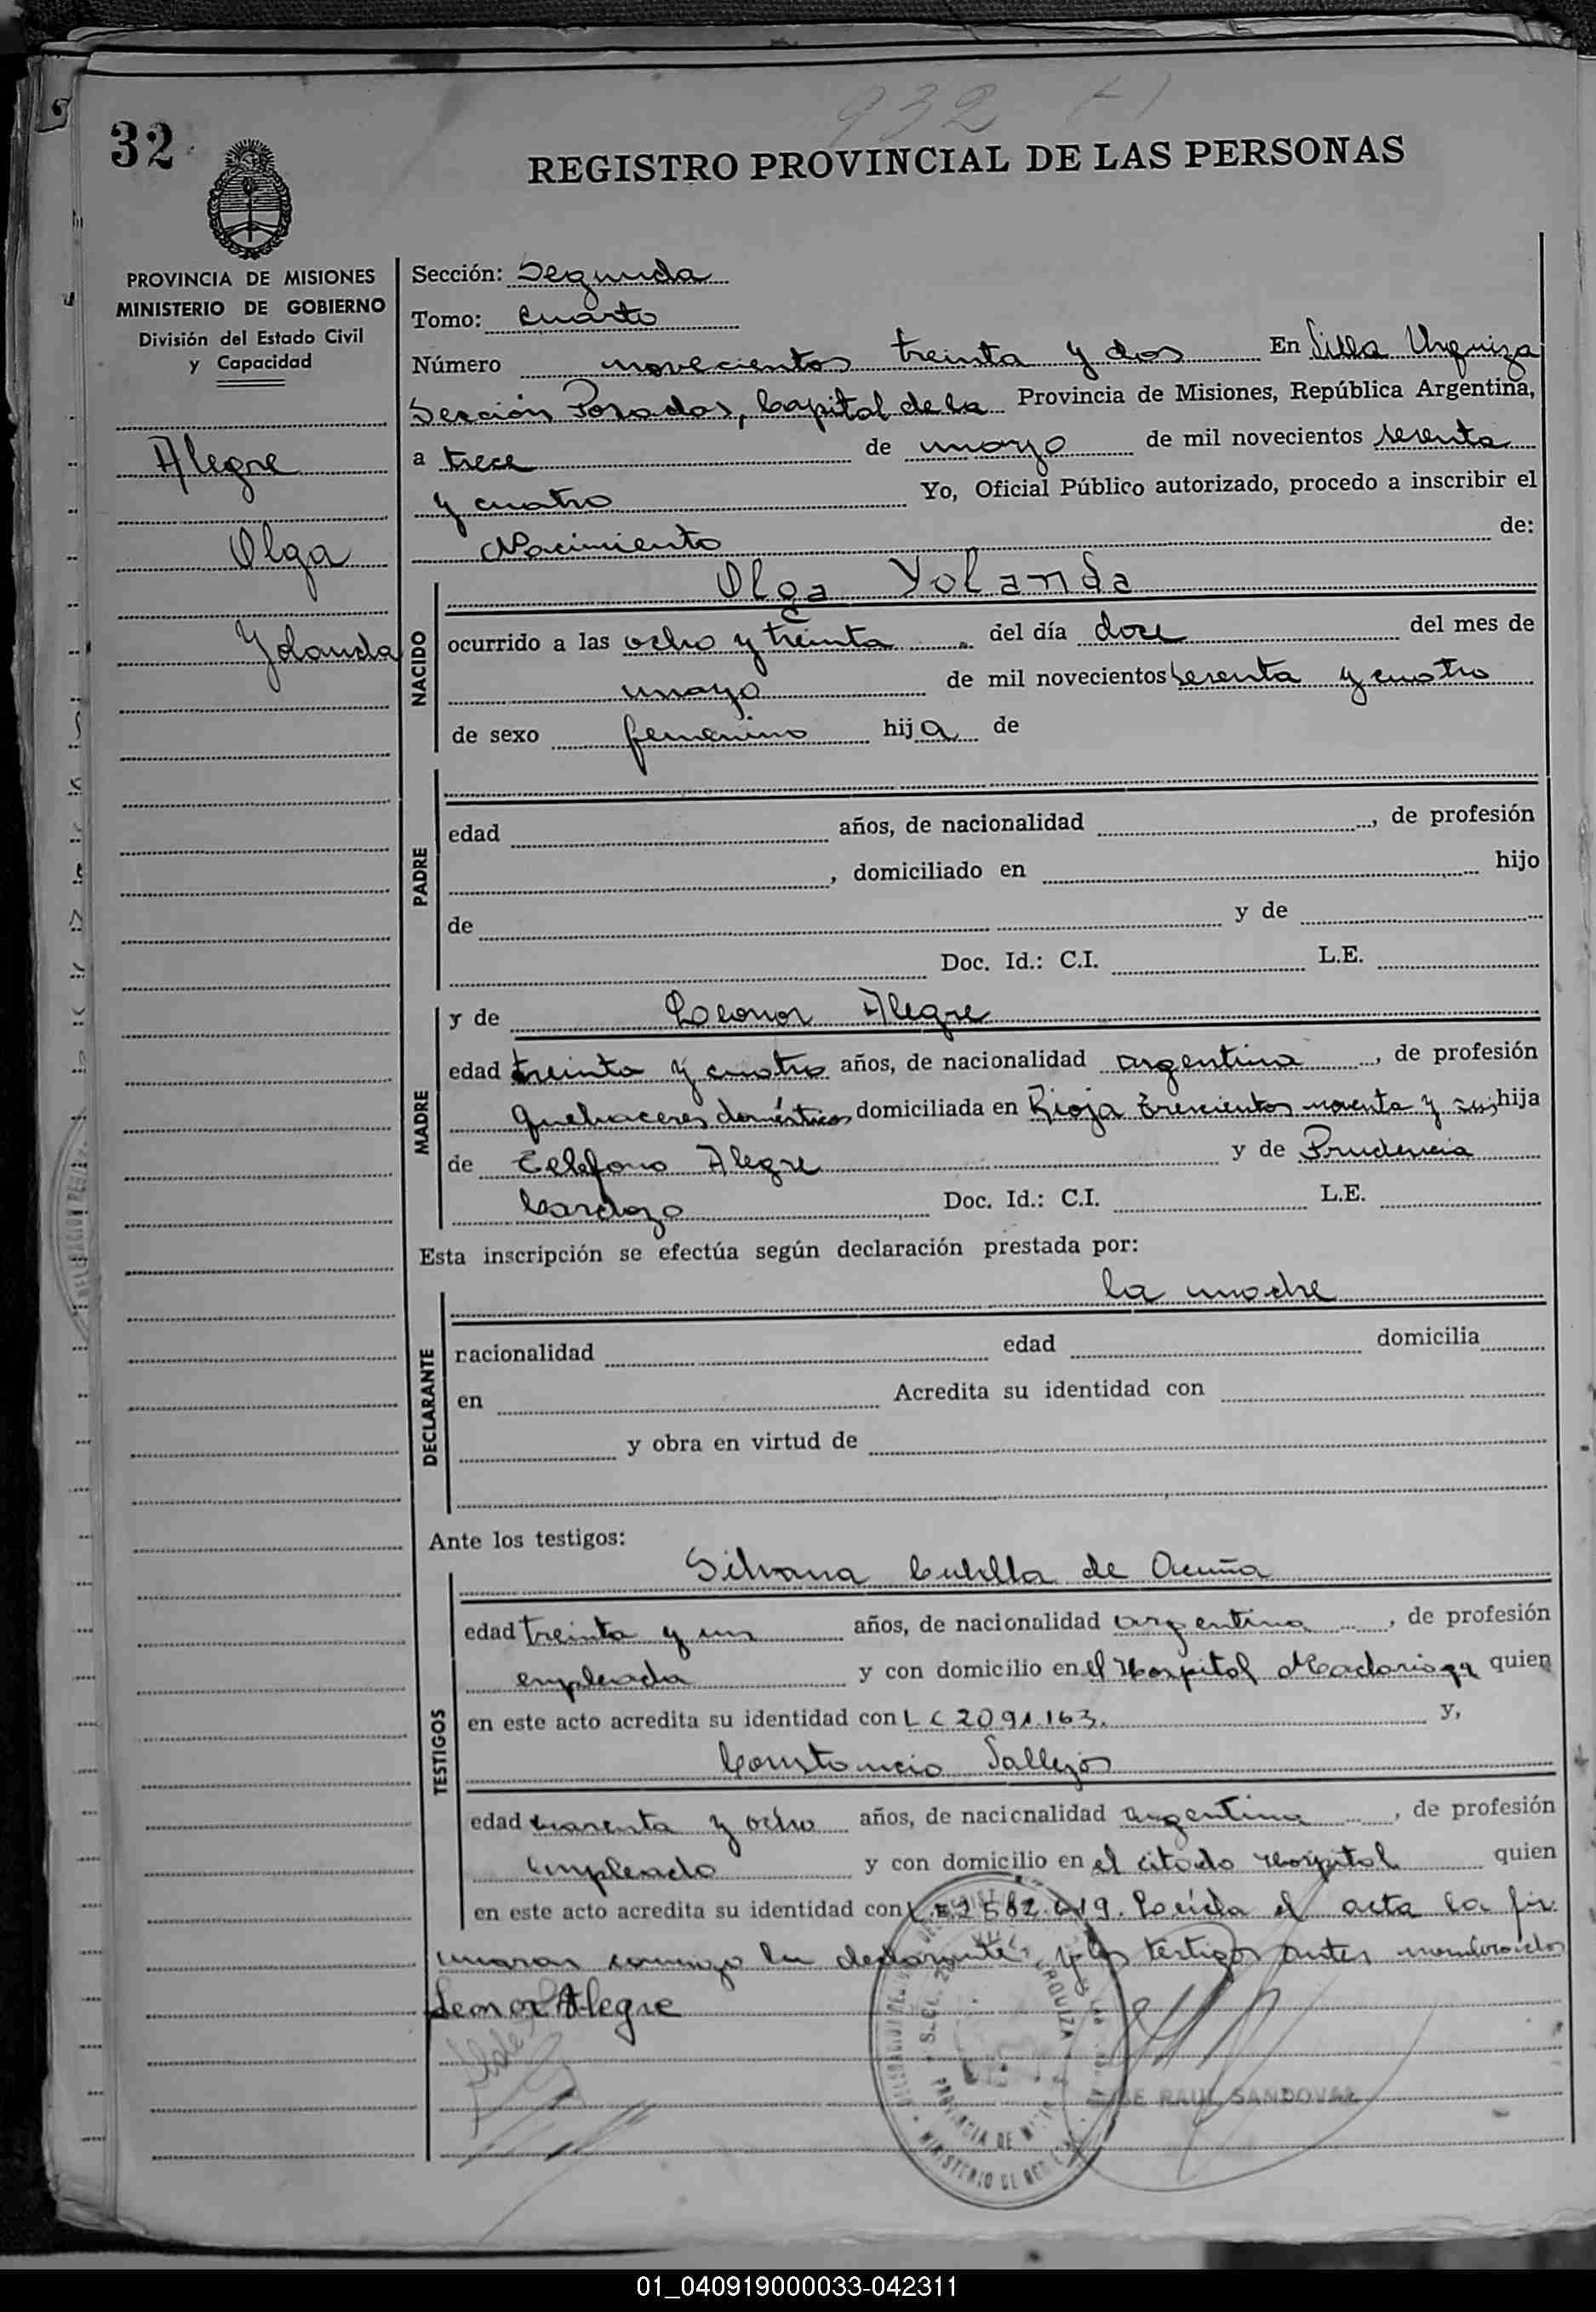 932
32
REGISTRO PROVINCIAL DE LAS PERSONAS
PROVINCIA DE MISIONES
MINISTERIO DE GOBIERNO
División del Estado Civil
y Capacidad
Alegre
Olga
Yolanda
Sección: Segunda
Tomo: Cuarto
Número novecientos treinta y dos En Villa Urquiza
Sección Posadas, Capital de la Provincia de Misiones, República Argentina,
a trece de mayo de mil novecientos sesenta
y cuatro Yo, Oficial Público autorizado, procedo a inscribir el
Nacimiento de:
NACIDO
Olga Yolanda
ocurrido a las ocho y treinta del día doce del mes de
mayo de mil novecientos sesenta y cuatro
de sexo femenino hija de
PADRE
edad años, de nacionalidad , de profesión
, domiciliado en hijo
de y de
Doc. Id.: C.I. L.E.
MADRE
y de Leonor Alegre
edad treinta y cuatro años, de nacionalidad argentina , de profesión
quehaceres domésticos domiciliada en Rioja trescientos noventa y seis hija
de Telefono Alegre y de Prudencia
Cardozo Doc. Id.: C.I. L.E.
Esta inscripción se efectúa según declaración prestada por:
DECLARANTE
la madre
nacionalidad edad domicilia
en Acredita su identidad con
y obra en virtud de
Ante los testigos:
TESTIGOS
Silvana Cubilla de Acuña
edad treinta y un años, de nacionalidad argentina , de profesión
empleada y con domicilio en el Hospital Madariaga quien
en este acto acredita su identidad con L C 2091.163. y,
Constancio Vallejos
edad cuarenta y ocho años, de nacionalidad argentina , de profesión
empleado y con domicilio en el citado Hospital quien
en este acto acredita su identidad con L.E. 2 582.019. Leída el acta la fir
maron conmigo la declarante y los testigos antes nombrados
Leonor Alegre
RAUL SANDOVAL
PROVINCIA DE
MINISTERIO DE
01_040919000033-042311